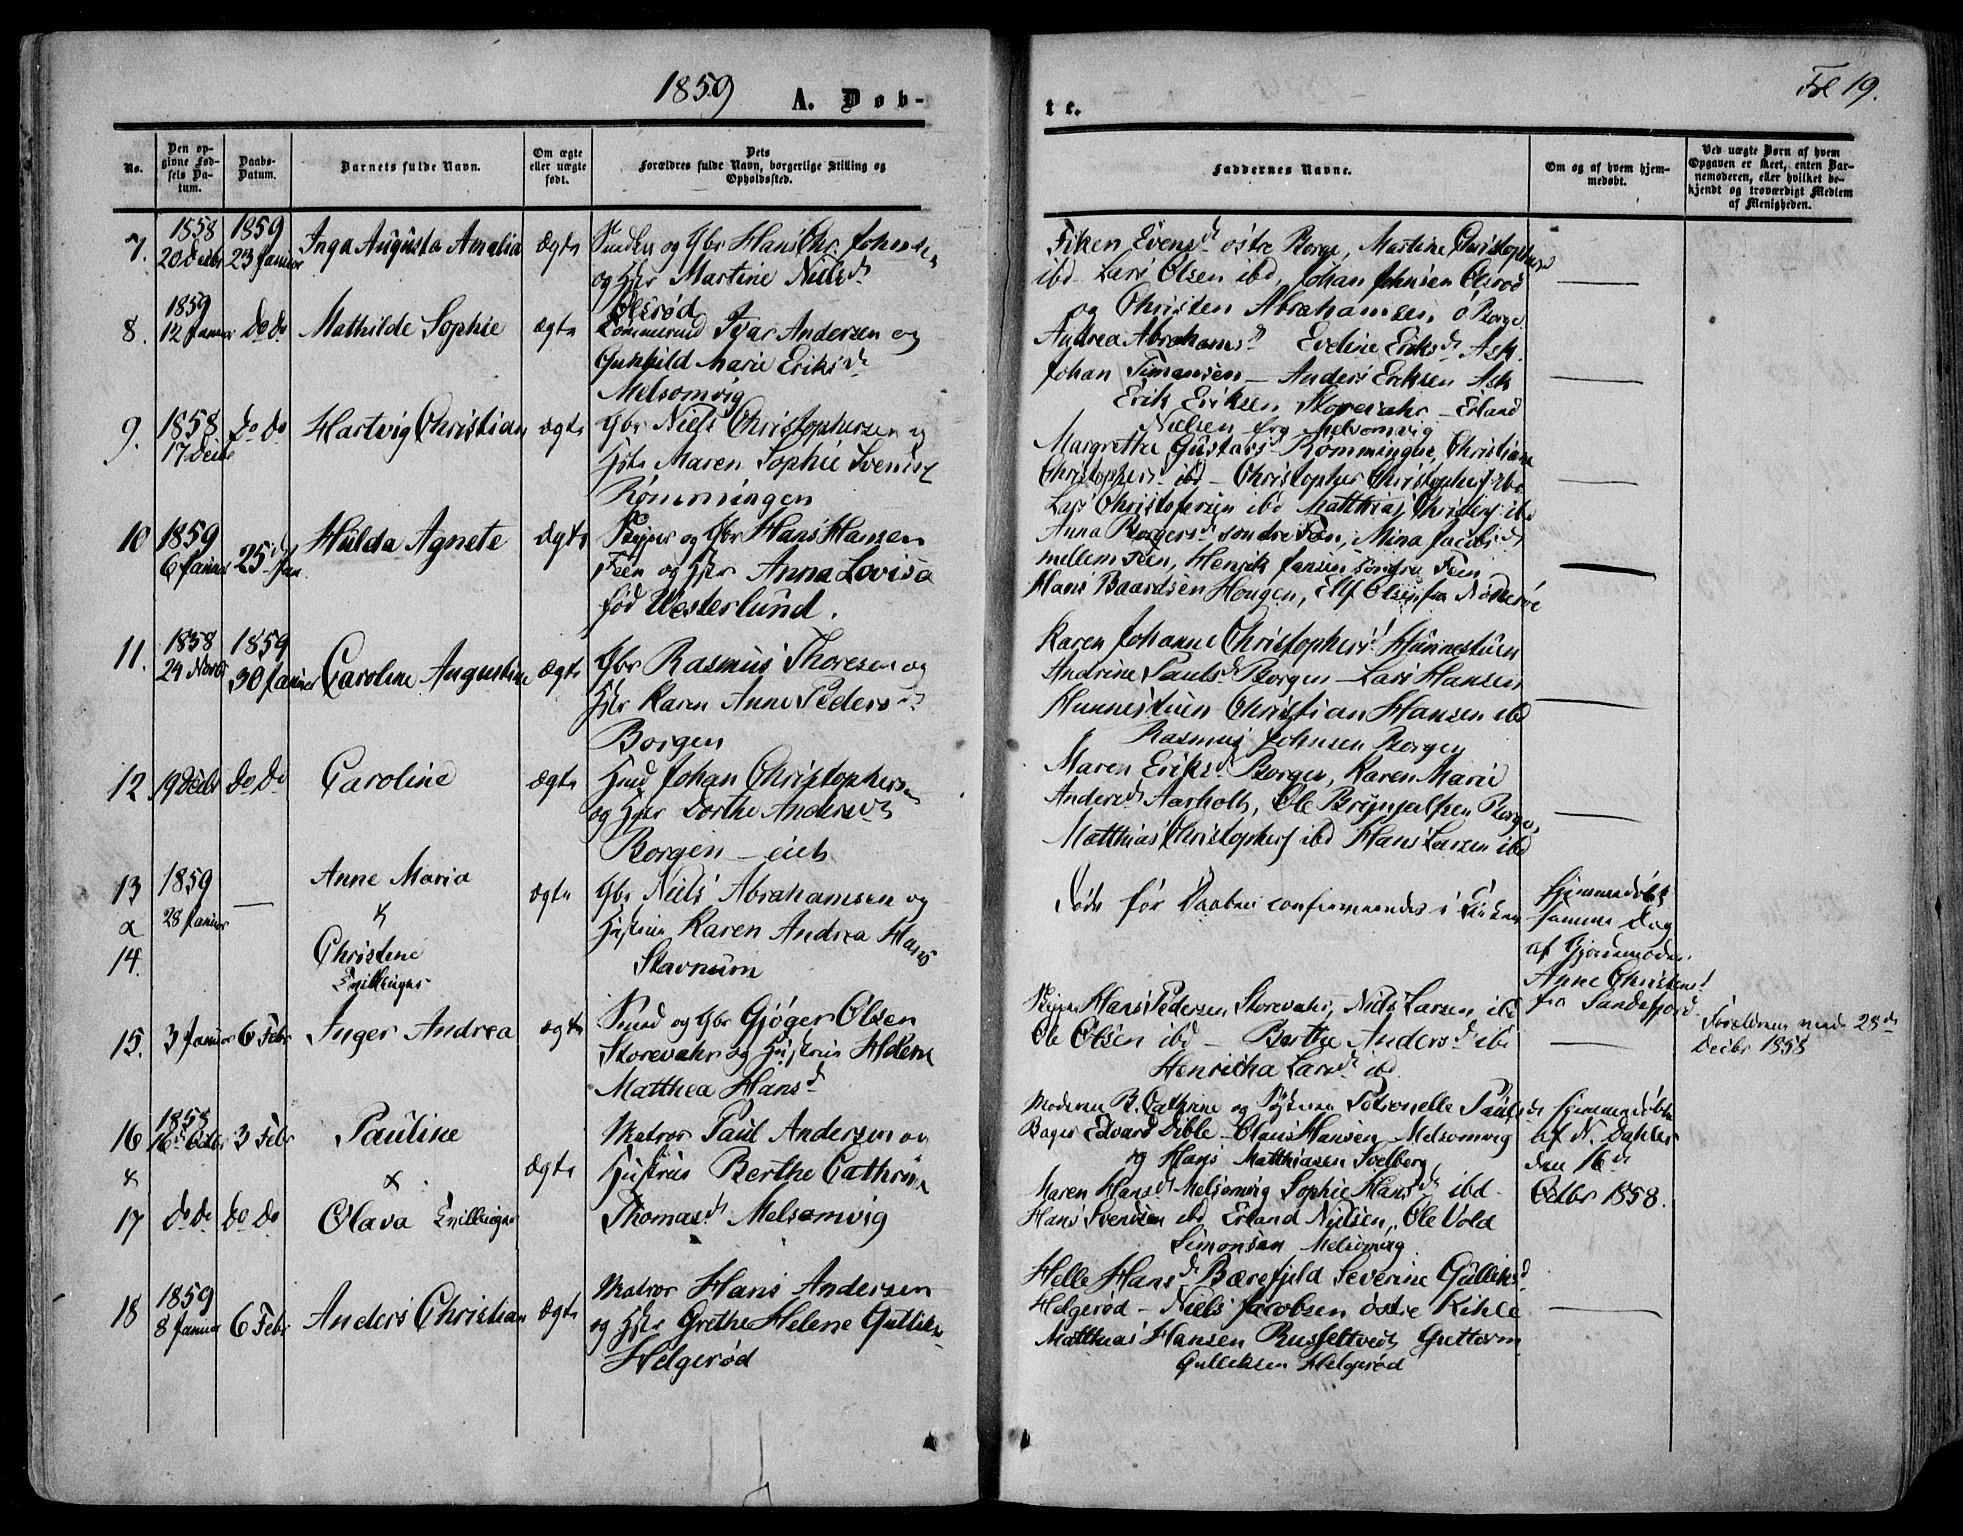 1859
A. Døb-
No.
Den op-
givne Fød-
sels Da-
tum.
Daabs-
Datum.
Barnets fulde Navn.
Om ægte
eller uægte
født.
Dets
Forældres fulde Navn, borgerlige Stilling og
Opholdssted.
7.
1858
20 Decbr
1859
23 Januar
Inga Augusta Amalia
Ægte
og Gbr Hans Chr. Johnsen
og Hstr Martine Nielsd
Olsrød
8.
1859
12 Januar
do do
Mathilde Sophie
ægte
Ivar Andersen og
Gunhild Marie Eriksd
Melsomvig
9.
1858
17 Decbr
do do
Hartvig Christian
ægte
Gbr Niels Christophersen og
Hstr Maren Sophie Svendsd
Rømmingen
10
1859
6 Januar
25d Jan.
Hulda Agnete
ægte
og Gbr Hans Hansen
Feen og Hstr Anna Lovisa
fød Westerlund.
11.
1858
24 Novbr
1859
30 Januar
Caroline Augustine
ægte
Gbr Rasmus Thoresen og
Hstr Karen Anne Pedersd
Borgen
12
19 Decbr
do do
Caroline
ægte
Hmd Johan Christophersen
og Hstr Dorthe Andersd
Borgen - eiet
13
1859
28 Januar
—
Anne Maria
&
ægte
Gbr Niels Abrahamsen og
Hustru Karen Andrea Hansd
Stavnum
&
14.
Christine
Tvillinger
15.
3 Januar
6 Febr
Inger Andrea
ægte
Smed og Gbr Gjøger Olsen
Storevahr og Hustru Helene
Matthea Hansd
16
1858
16d Octbr
3 Febr
Pauline
Matros Paul Andersen og
&
&.
ægte
Hustru Berthe Cathrine
17
do do
do do
Olava Tvillinger
Thomasd Melsomvig
18
1859
8 Januar
6 Febr
Anders Christian
ægte
Matros Hans Andersen
og Hstr Grethe Helene Gulliksd
Helgerød
te.
Fol 19.
Faddernes Navne.
Om og af hvem hjem-
medøbt.
Ved uægte Børn af hvem
Opgaven er skeet, enten Bar-
nemoderen, eller hvilket be-
kjendt og troværdigt Medlem
af Menigheden.
Fiken Evensd østre Borge, Martine Christophersd
ibd - Lars Olsen ibd, Johan Johnsen Olsrød
og Christen Abrahamsen ø Borge.
Andrea Abrahamsd Eveline Eriksd Ask.
Johan Simonsen - Anders Eriksen Ask
Erik Eriksen Storevahr - Erland
Nielsen Melsomvig
Margrethe Gustavsd Rømmingen, Christiane
Christophersd ibd - Christopher Christophers ibd
Lars Christofersen ibd Matthias Christophers ibd
Anna Borgersd søndre Feen, Mina Jacobsd
mellem Feen, Henrik Jansen søndre Feen
Hans Baardsen Hougen, Ellf Olsen fra Nøtterøe
Karen Johanne Christophersd Hunnestuen
Andrine Paulsd Borgen - Lars Hansen
Hunnestuen Christian Hansen ibd
Rasmus Johnsen Borgen
Maren Eriksd Borgen, Karen Marie
Andersd Aarholt, Ole Brynjulfsen Borgen
Matthias Christophers ibd Hans Larsen ibd
Døde før Daaben confirmeredes i Kirken
Hjemmedøbt
samme Dag
af Gjordemoder
Anne Christens
fra Sandefjord
Hans Pedersen Storevahr, Niels Larsen ibd
Ole Olsen ibd - Berthe Andersd ibd
Henricha Larsd ibd.
Forældrene viede 28de
Decbr 1858
Moderen B. Cathrine og Søsteren Petronelle Paulsd
Bager Edvard Dible - Olaus Hansen Melsomvig
og Hans Matthiasen Svelberg,
Hjemmedøbt
af N. Dahler
den 16de
Octbr 1858.
Maren Hansd Melsomvig Sophie Hansd ibd -
Hans Svendsen ibd Erland Nielsen, Ole Vold
Simonsen Melsomvig.
Helle Hansd Bærefjeld Severine Gulliksd
Helgerød - Niels Jacobsen østre Kihle
Matthias Hansen Russeltvedt Guttorm
Gulliksen Helgerød